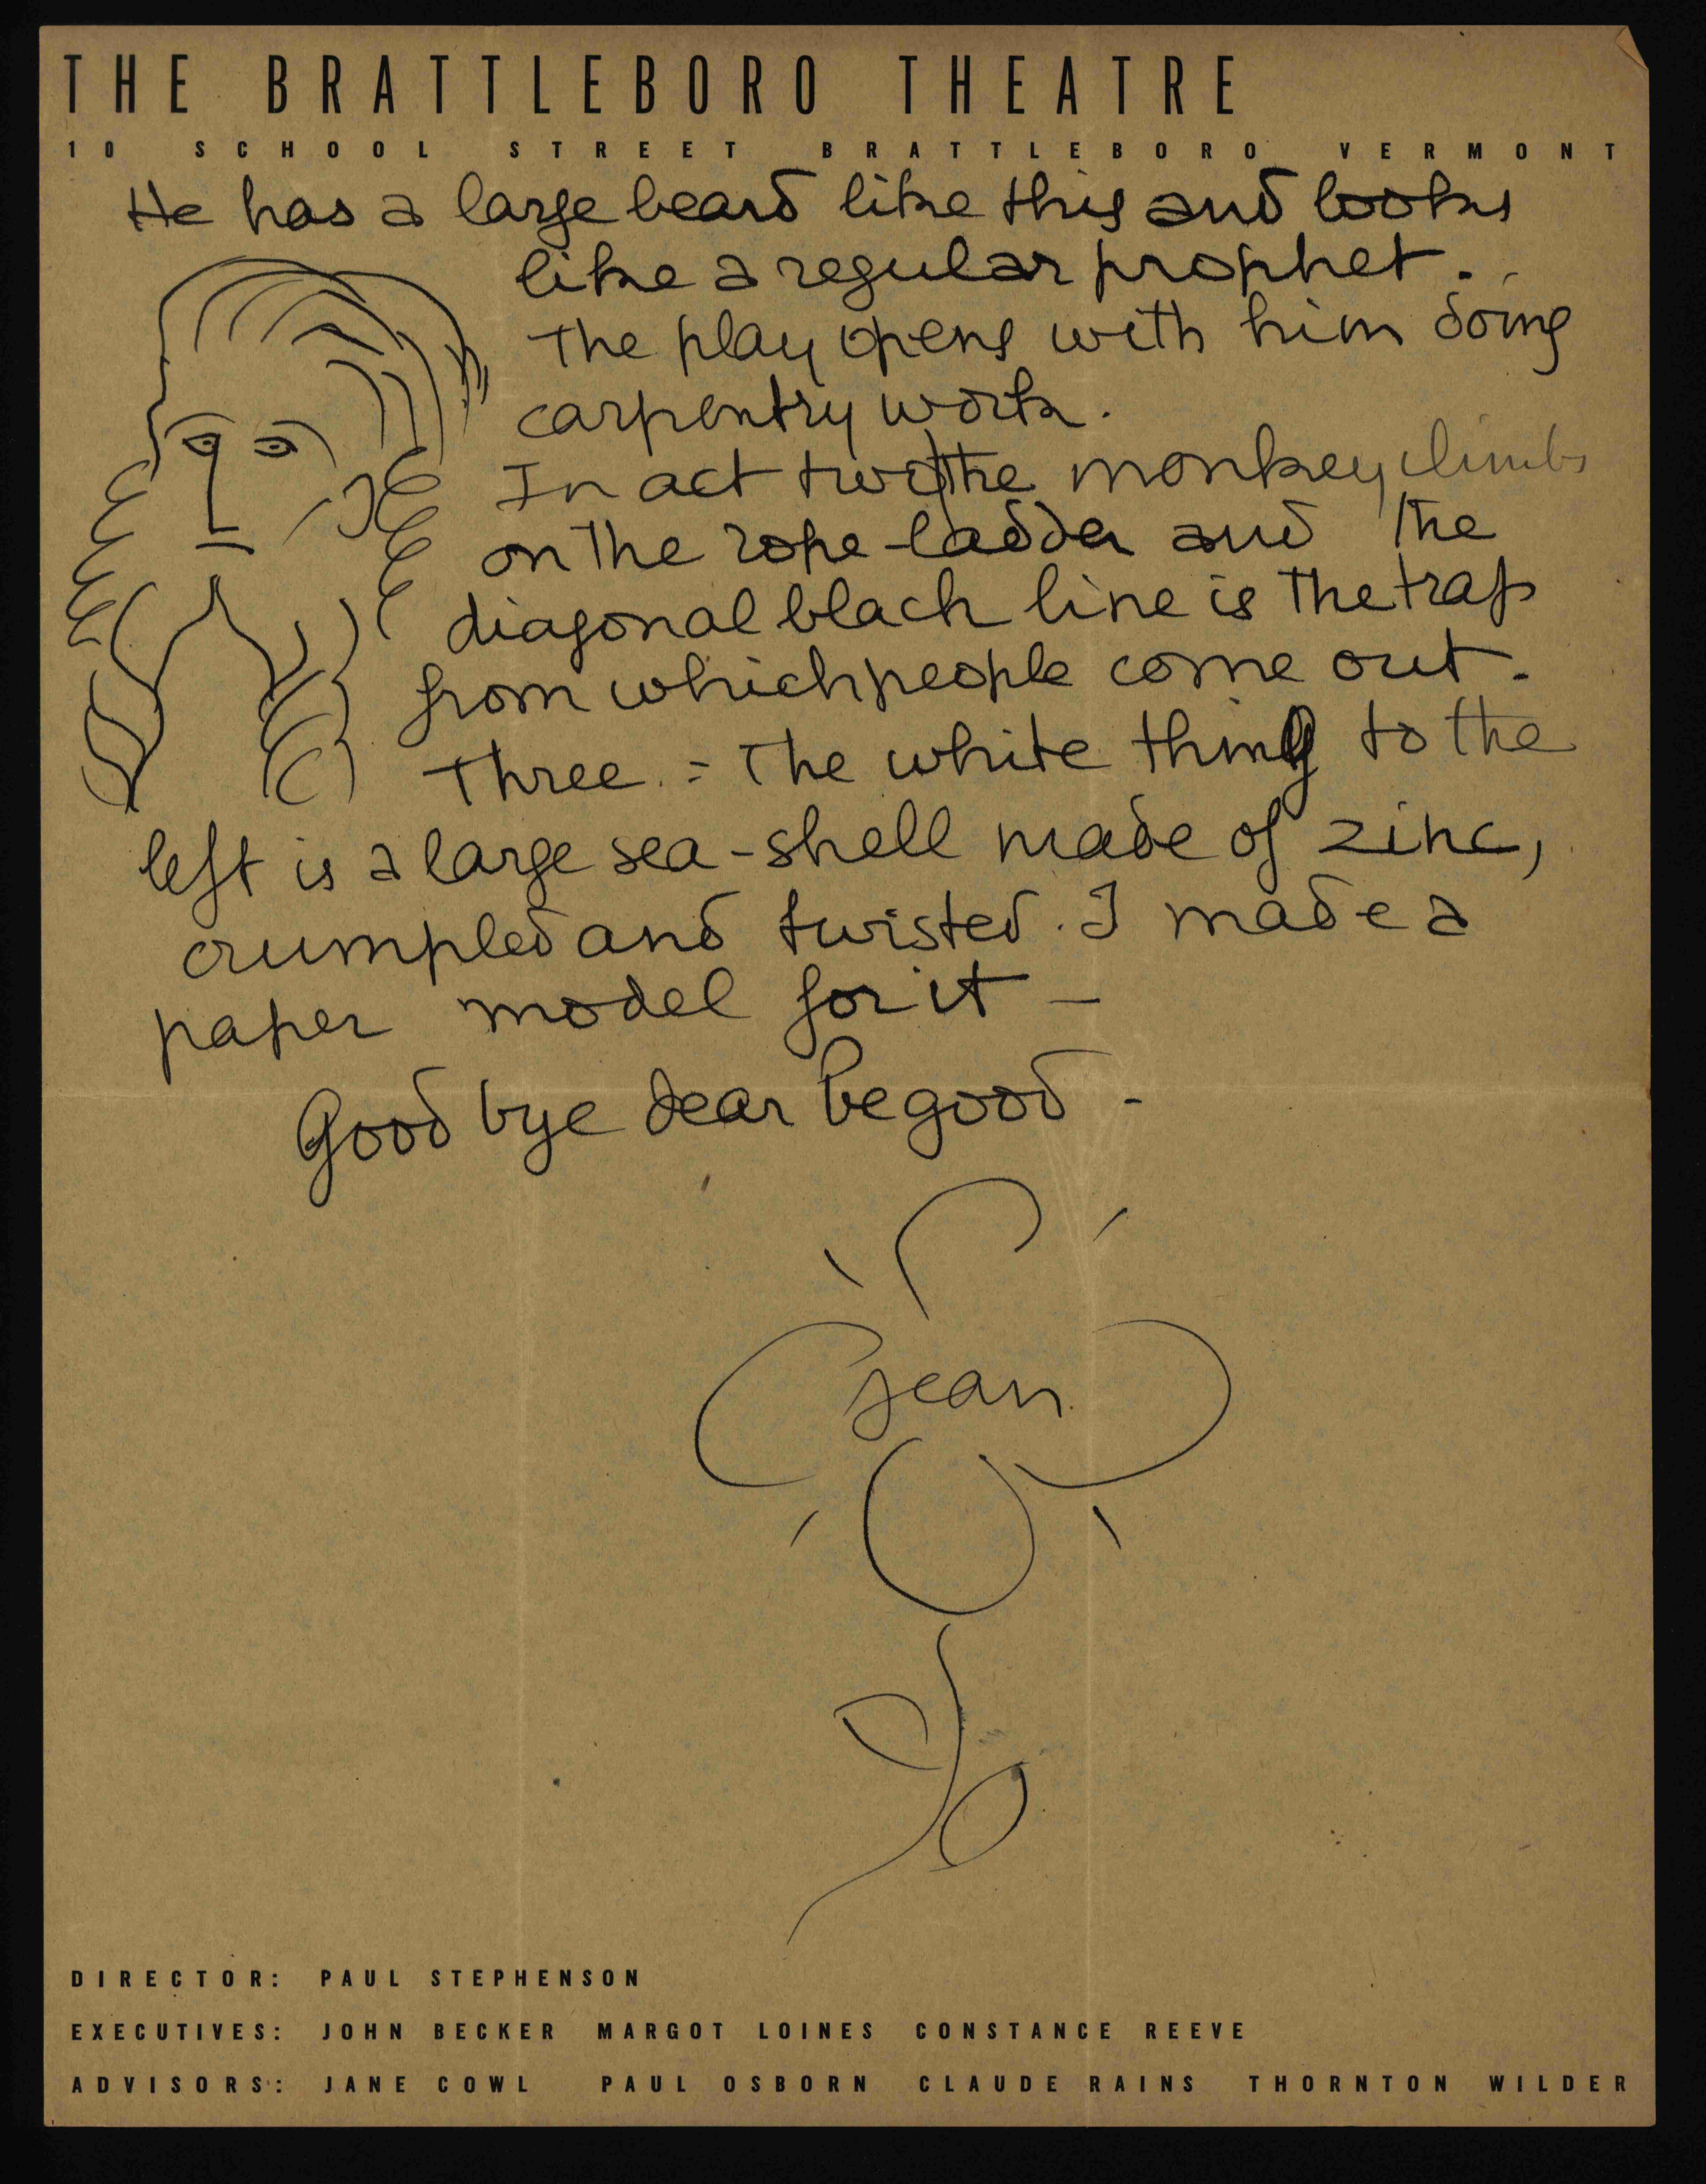 THE BRATTLEBORO THEATRE
10 SCHOOL STREET BRATTLEBORO VERMONT
He has a large beard like this and looks
like a regular prophet.
The play opens with him doing
carpentry work.
In act two the monkey climbs
on the rope-ladder and the
diagonal black line is the trap
from which people come out.
Three. = The white thing to the
left is a large sea-shell made of zinc,
crumpled and twisted. I made a
paper model for it —
Good bye dear be good -
Jean
DIRECTOR: PAUL STEPHENSON
EXECUTIVES: JOHN BECKER MARGOT LOINES CONSTANCE REEVE
ADVISORS: JANE COWL PAUL OSBORN CLAUDE RAINS THORNTON WILDER